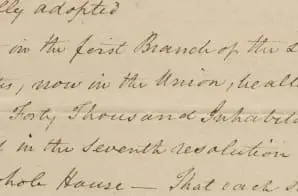 lly adopted
in the first Branch of the L
es, now in the Union, be all
Forty Thousand Inhabita
d in the seventh resolution
hole House — That each S